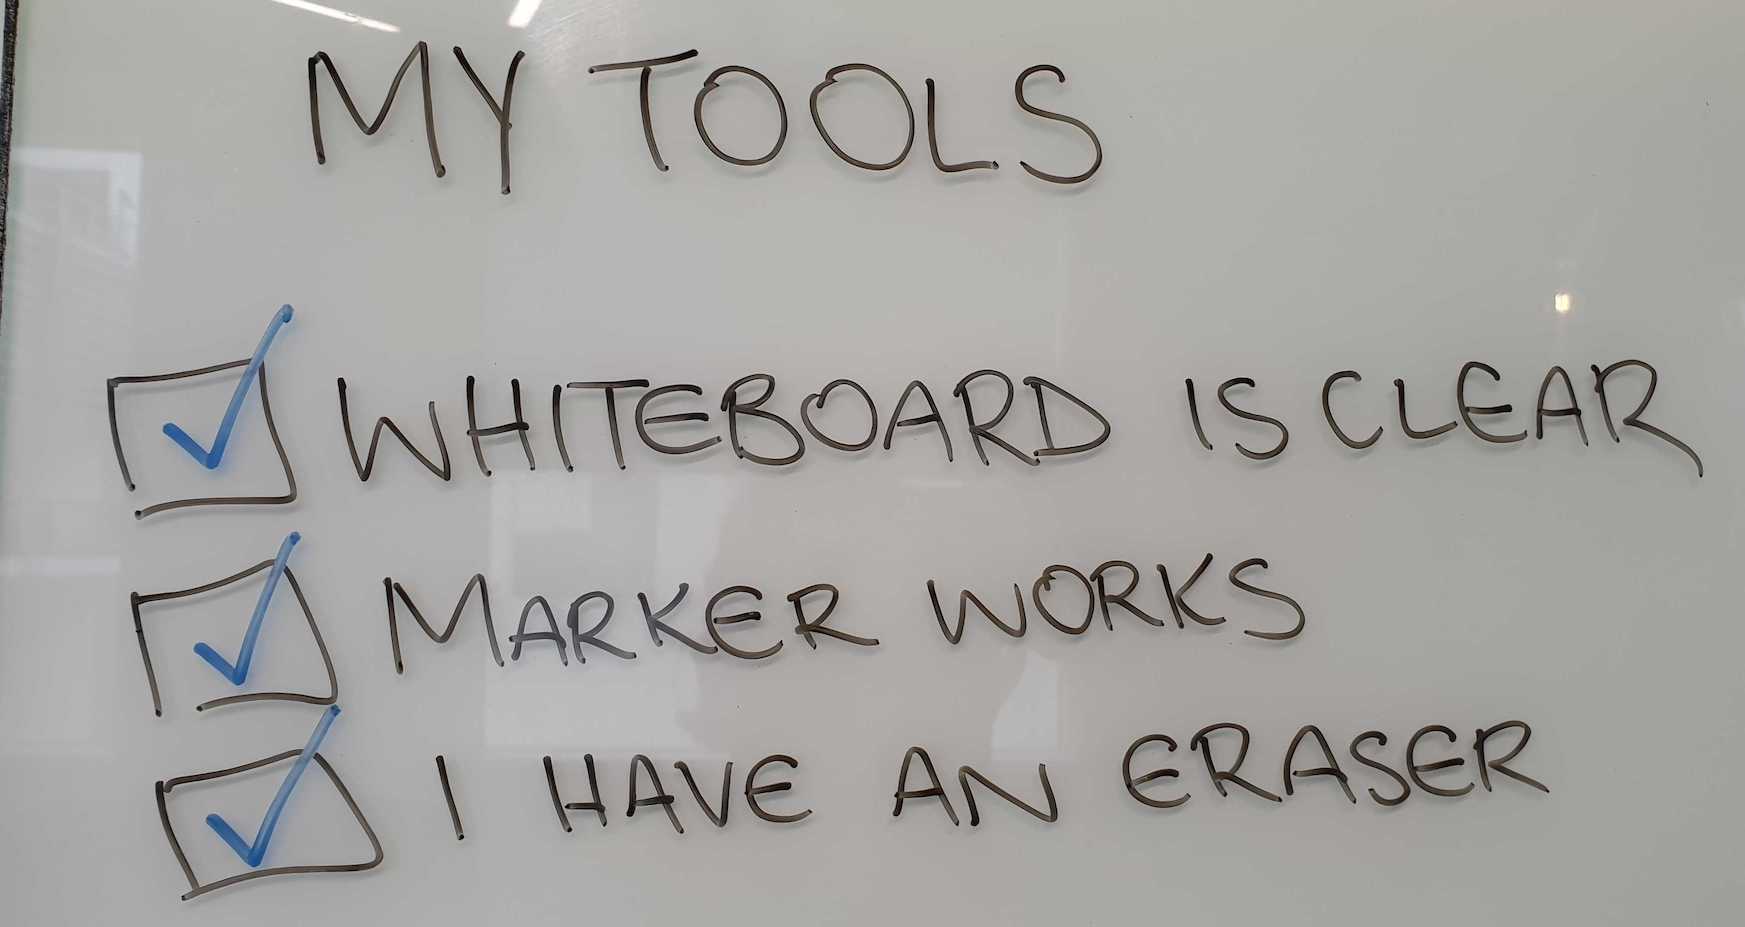 MY TOOLS
WHITEBOARD IS CLEAR
MARKER WORKS
I HAVE AN ERASER